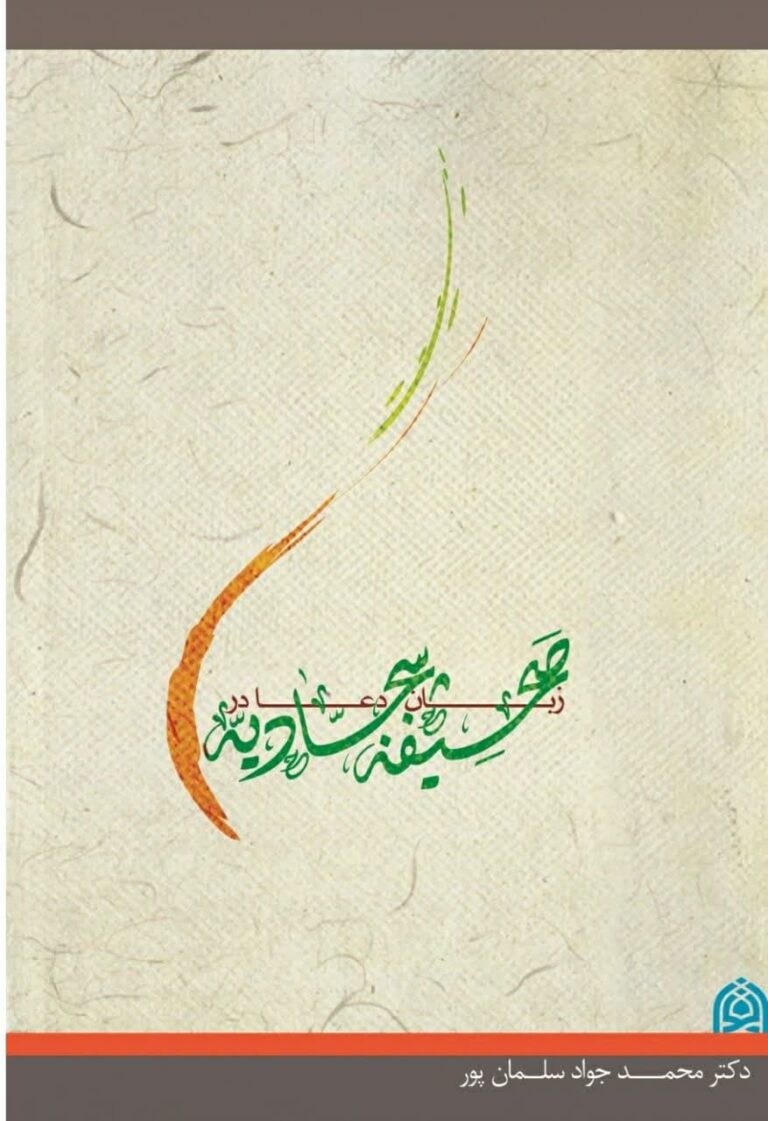 زبان دعا در
صحیفه سجادیه
دکتر محمد جواد سلمان پور